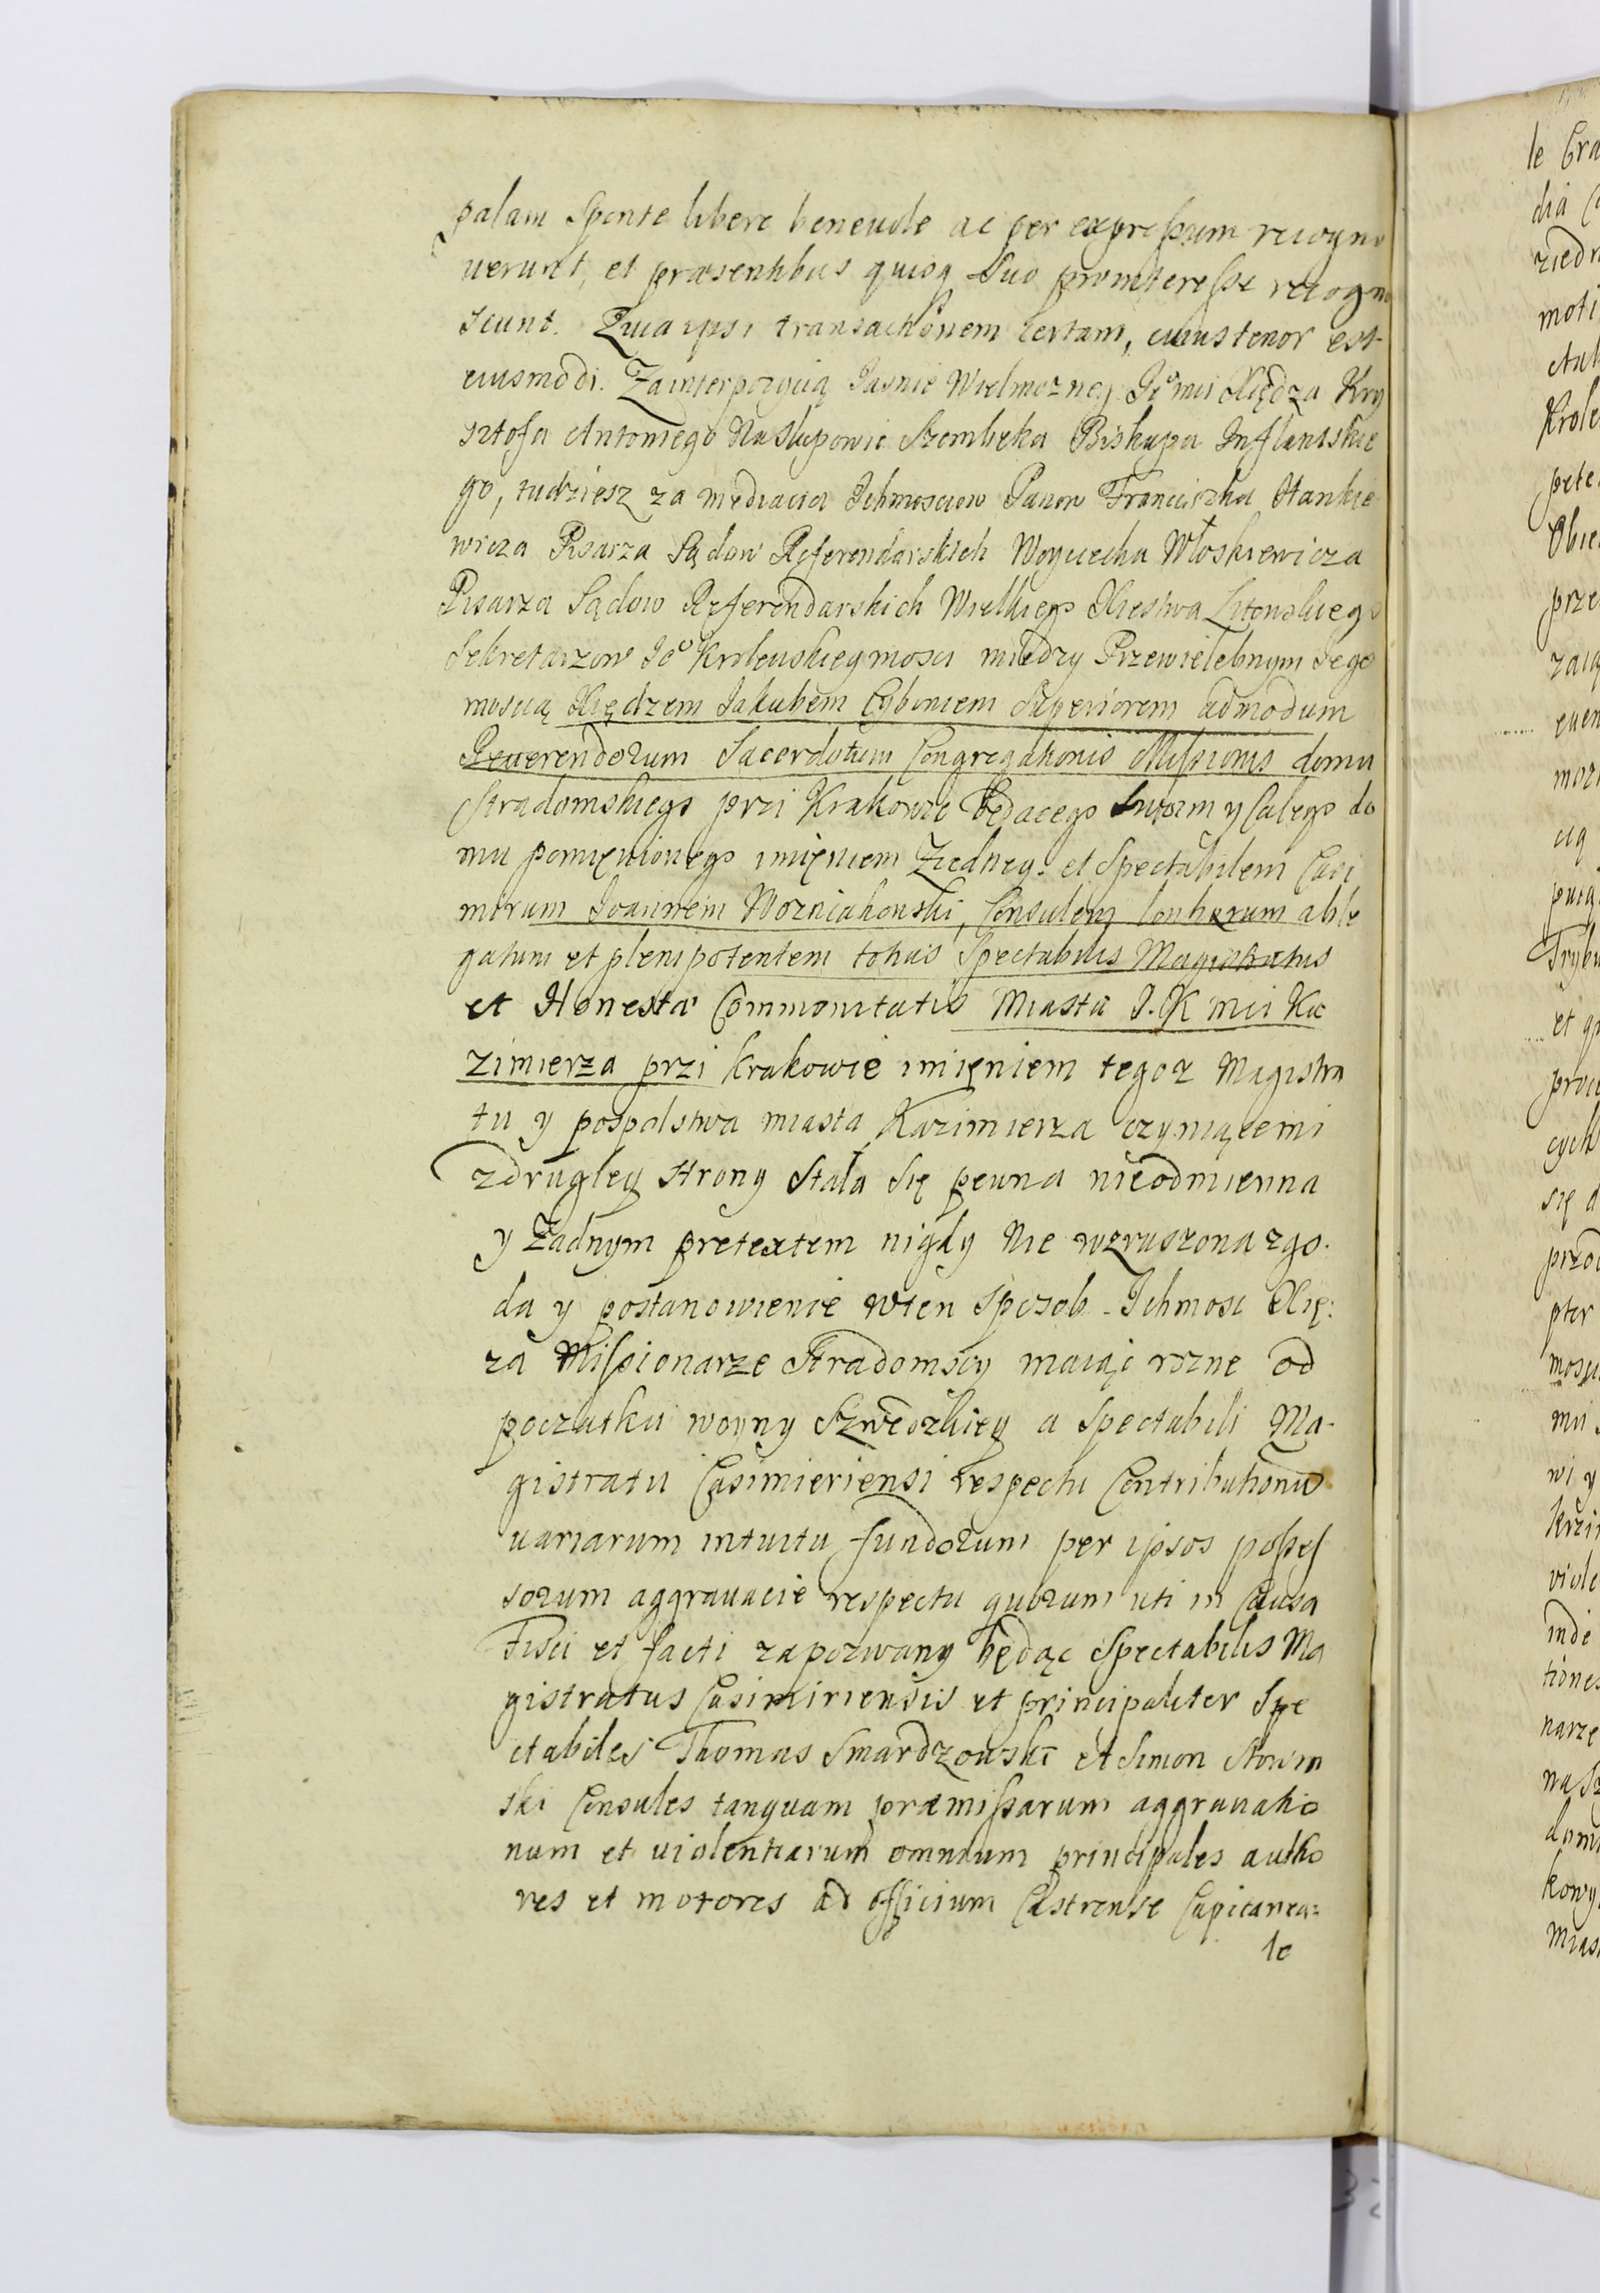 palam sponte libere beneuole ac per expressum recogno
uerunt, et præsentibus quisq suo prointeresse recogno
scunt. Quia ipsi transactionem certam, cuius tenor est
eiusmodi. Zainterpozycią Jasnie Wielmoznego Jo mci Xiędza Kry
sztofa Antoniego Nasłupowie Szembeka Biskupa Inflantskie
go, tudziesz za mediacia Ichmosciow Panow Franciszka Stankie
wicza Pisarza Sądow Referendarskich Woyciecha Włoskiewicza
Pisarza Sądow Referendarskich Wielkiego Xiestwa Litewskiego
Sekretarzow Jo Krolewskieymosci miedzy Przewielebnym Jego
mością Xiędzem Jakubem Cyboniem Superiorem admodum
Reuerendorum Sacerdotum Congregationis Missionis domu
Stradomskiego przi Krakowie będacego swoim y Całego do
mu pomięnionego imięniem Ziedney. et Spectabilem Casi
mirum Joannem Wozniakouski, Consulem
gatum et plenipotentem totius Spectabilis Magistratus
et Honestæ Commonitatis Miasta J. K mci Ka
zimierza przi Krakowie imięniem tegoz Magistra
tu y pospolstwa miasta Kazimierza czyniącemi
zdrugiey strony Stała się pewna nieodmienna
y Zadnym pretextem nigdy nie wzruszona zgo.
da y postanowienie wten sposob - Ichmosc Xię:
za Missionarze Stradomscy maiąc rozne od
poczatku woyny Szwedzkiey a Spectabili Ma-
gistratu Casimieriensi respectu Contributionu
uariarum intuitu fundorum per ipsos posses
sorum aggrauacie respectu quorum uti in Causa
Fisci et facti zapozwany będąc Spectabilis Ma
gistratus Casimiriensis et principaliter Spe
ctabiles Thomas Smardzouski et Simon Słowin
ski Consules tanquam præmissarum aggrauatio
num et uiolentiarum omnium principales autho
res et motores ad officium Castrense Capitanea=
le